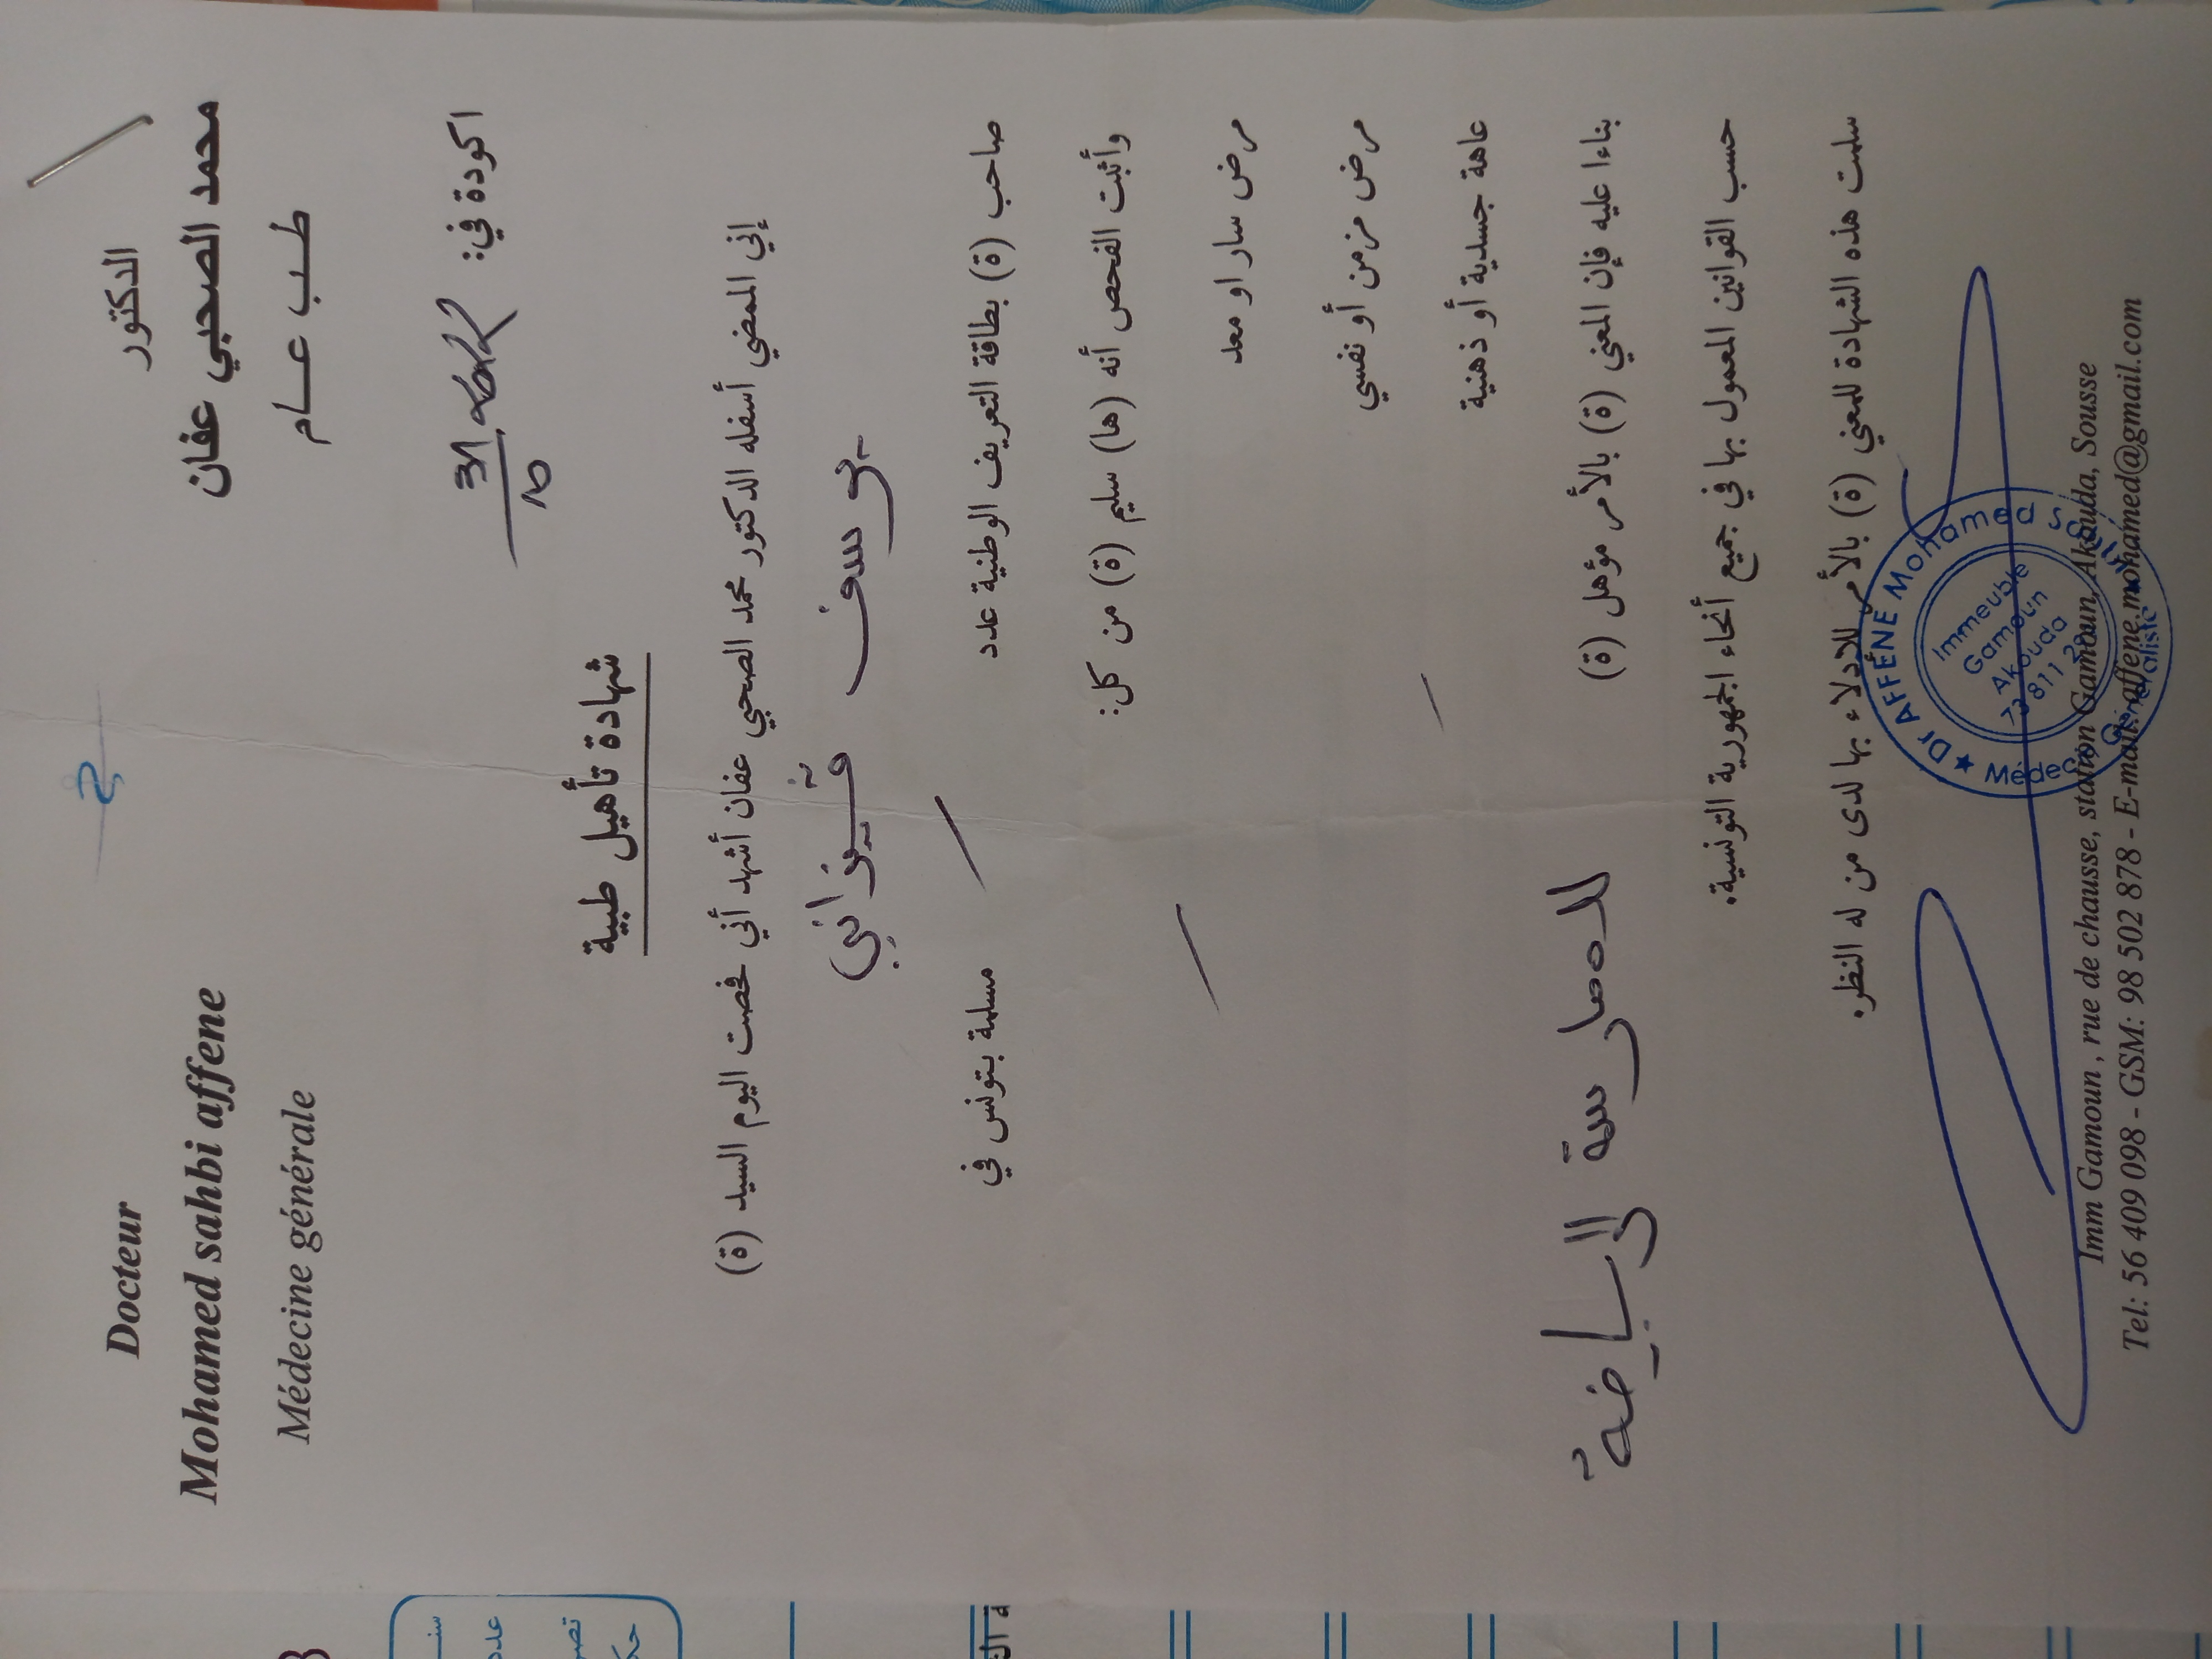 Docteur
Mohamed sahbi affene
Médecine générale
الدكتور
محمد الصحبي عفان
طب عام
اكودة في:
شهادة تأهيل طبية
إني الممضي أسفله الدكتور محمد الصحبي عفان أشهد أني فحصت اليوم السيد (ة)
يوسف قيزاني
صاحب (ة) بطاقة التعريف الوطنية عدد مسلمة بتونس في
وأثبت الفحص أنه (ها) سليم (ة) من كل:
مرض سار او معد
مرض مزمن أو نفسي
عاهة جسدية أو ذهنية
بناءا عليه فإن المعني (ة) بالأمر مؤهل (ة) لممارسة الرياضة
حسب القوانين المعمول بها في جميع أنحاء الجمهورية التونسية.
سلمت هذه الشهادة للمعني (ة) بالأمر للادلاء بها لدى من له النظر.
Dr AFFENE Mohamed
Immeuble
Gamoun
Akouda
Imm Gamoun , rue de chausse, station Gamoun, Akouda, Sousse
Tel: 56 409 098 - GSM: 98 502 878 - E-mail: affene.mohamed@gmail.com